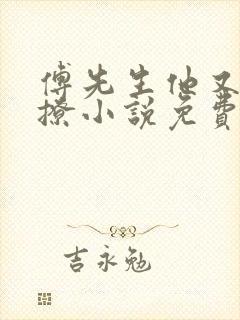 傅先生他又
撩小說免費
吉永勉